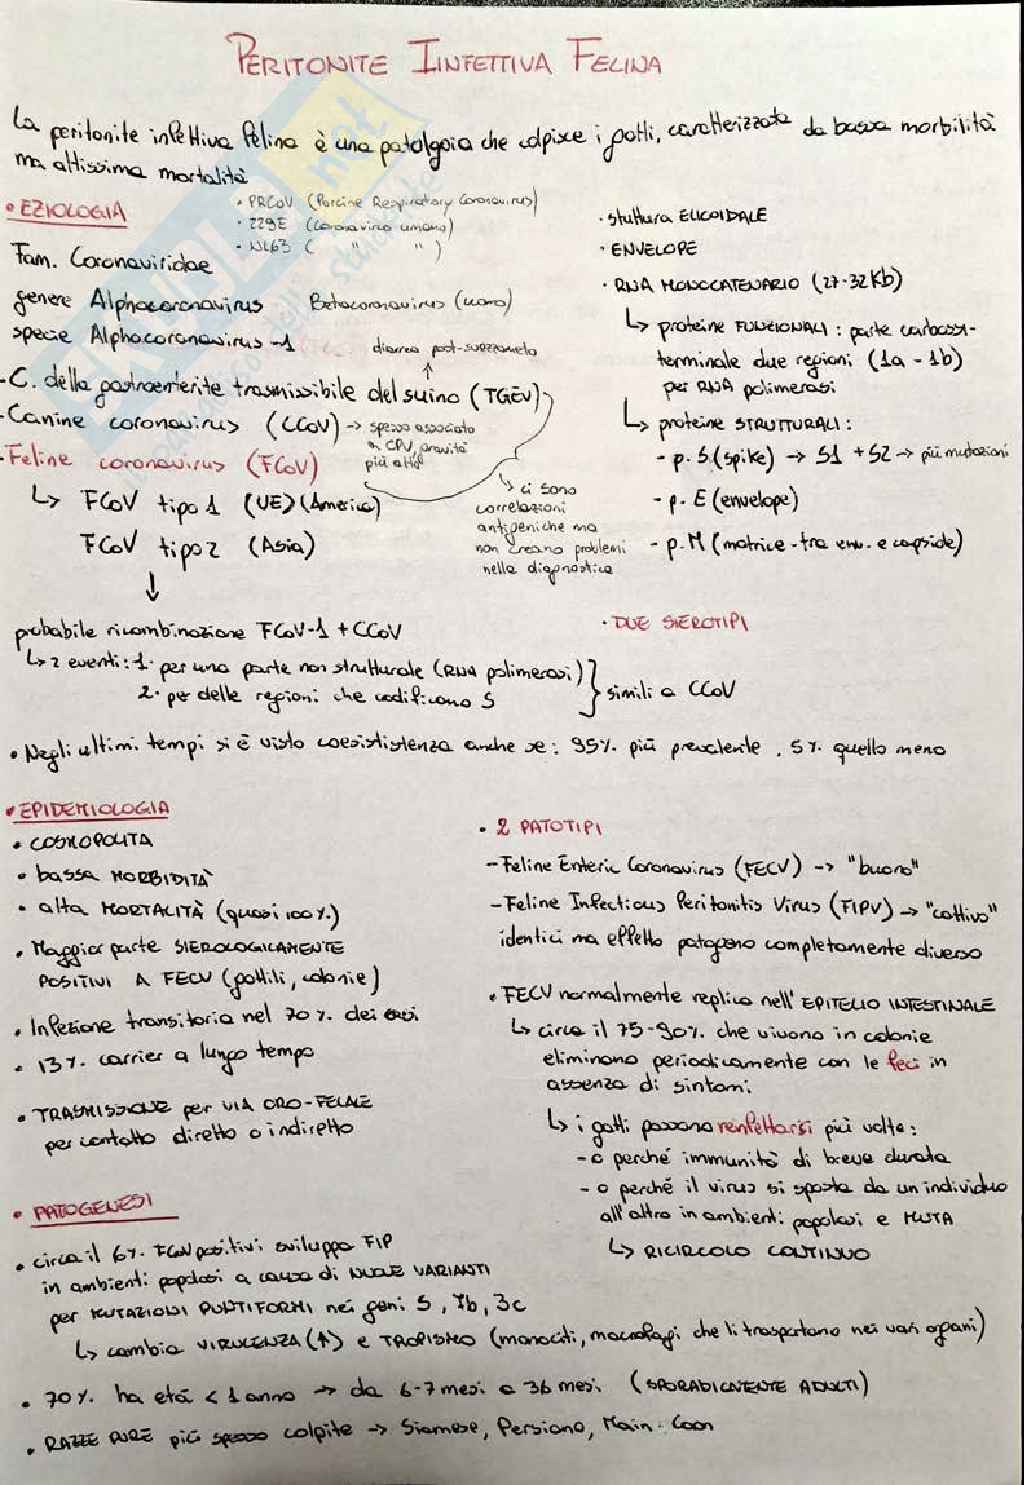 PERITONITE INFETTIVA FELINA
La peritonite infettiva felina è una patolgoia che colpisce i gatti, caratterizzata da bassa morbilità
ma altissima mortalità
• EZIOLOGIA
• PRCoV (Porcine Respiratory Coronavirus)
• 229E (Coronavirus umano)
• NL63 ( " " )
Fam. Coronaviridae
genere Alphacoronavirus Betacoronavirus (uomo)
specie Alphacoronavirus-1
diarrea post-svezzamento
- C. della gastroenterite trasmissibile del suino (TGEV)
- Canine coronavirus (CCoV) → spesso associato
a CPV, gravità
più alta
- Feline coronavirus (FCoV)
↳ FCoV tipo 1 (UE) (America)
FCoV tipo 2 (Asia)
↳ ci sono
correlazioni
antigeniche ma
non creano problemi
nella diagnostica
↓
probabile ricombinazione FCoV-1 + CCoV
↳ 2 eventi: 1. per una parte non strutturale (RNA polimerasi)
2. per delle regioni che codificano S
} simili a CCoV
• struttura ELICOIDALE
• ENVELOPE
• RNA MONOCATENARIO (27-32 Kb)
↳ proteine FUNZIONALI: parte carbossi-
terminale due regioni (1a - 1b)
per RNA polimerasi
↳ proteine STRUTTURALI:
- p. S (spike) → S1 + S2 → più mutazioni
- p. E (envelope)
- p. M (matrice - tra env. e capside)
• DUE SIEROTIPI
• Negli ultimi tempi si è visto coesististenza anche se: 95% più prevalente, 5% quello meno
• EPIDEMIOLOGIA
• COSMOPOLITA
• bassa MORBIDITÀ
• alta MORTALITÀ (quasi 100%)
• Maggior parte SIEROLOGICAMENTE
POSITIVI A FECV (gattili, colonie)
• Infezione transitoria nel 70% dei casi
• 13% carrier a lungo tempo
• TRASMISSIONE per VIA ORO-FECALE
per contatto diretto o indiretto
• 2 PATOTIPI
- Feline Enteric Coronavirus (FECV) → "buono"
- Feline Infectious Peritonitis Virus (FIPV) → "cattivo"
identici ma effetto patogeno completamente diverso
• FECV normalmente replica nell'EPITELIO INTESTINALE
↳ circa il 75-90% che vivono in colonie
eliminano periodicamente con le feci in
assenza di sintomi
↳ i gatti possono reinfettarsi più volte:
- o perché immunità di breve durata
- o perché il virus si sposta da un individuo
all'altro in ambienti popolosi e MUTA
↳ RICIRCOLO CONTINUO
• PATOGENESI
• circa il 6% FCoV positivi sviluppa FIP
in ambienti popolosi a causa di NUOVE VARIANTI
per MUTAZIONI PUNTIFORMI nei geni S, 7b, 3c
↳ cambia VIRULENZA (↑) e TROPISMO (monociti, macrofagi che li trasportano nei vari organi)
• 70% ha età < 1 anno → da 6-7 mesi a 36 mesi (SPORADICAMENTE ADULTI)
• RAZZE PURE più spesso colpite → Siamese, Persiano, Main-Coon